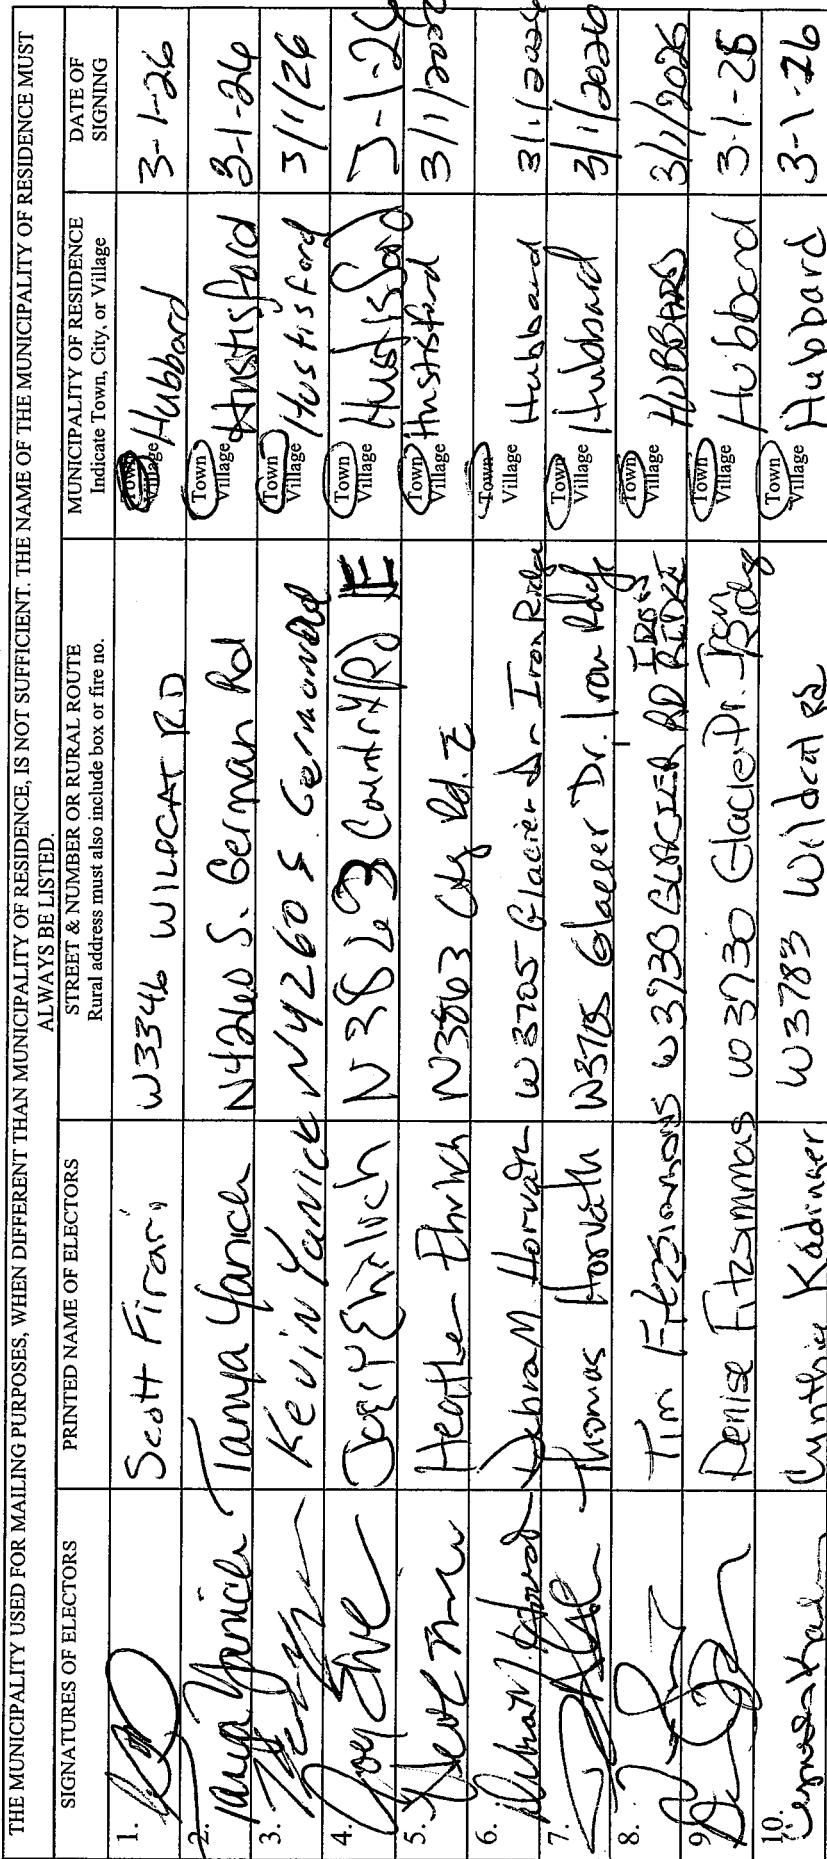 THE MUNICIPALITY USED FOR MAILING PURPOSES, WHEN DIFFERENT THAN MUNICIPALITY OF RESIDENCE, IS NOT SUFFICIENT. THE NAME OF THE MUNICIPALITY OF RESIDENCE MUST
ALWAYS BE LISTED.
SIGNATURES OF ELECTORS PRINTED NAME OF ELECTORS STREET & NUMBER OR RURAL ROUTE MUNICIPALITY OF RESIDENCE DATE OF
Rural address must also include box or fire no. Indicate Town, City, or Village SIGNING
1. Scott Firari W3346 WILDCAT RD Town Village Hubbard 3-1-26
2. Tanya Yanich Tanya Yanich N4260 S. German Rd Town Village Hustisford 3-1-26
3. Kevin Yanich N4260 S. German Rd Town Village Hustisford 3/1/26
4. Joey Ehrlich N3863 County Rd E Town Village Hustisford 3-1-26
5. Heather Ehrlich N3863 Cty Rd. E Town Village Hustisford 3/1/2026
6. Debra M. Horvath Debra M Horvath W3705 Glacier Dr Iron Ridge Town Village Hubbard 3/1/2026
7. Thomas Horvath W3705 Glacier Dr. Iron Rdg Town Village Hubbard 3/1/2026
8. Tim Fitzsimmons W3730 GLACIER RD IRON RIDGE Town Village HUBBARD 3/1/2026
9. Denise Fitzsimmons W3730 Glacier Dr. Iron Ridge Town Village Hubbard 3-1-26
10. Cynthia Kadinger W3783 Wildcat Rd Town Village Hubbard 3-1-26